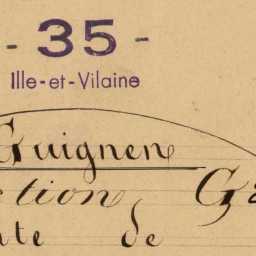 - 35 -
Ille-et-Vilaine
Guignen
ction, Ga
nte de